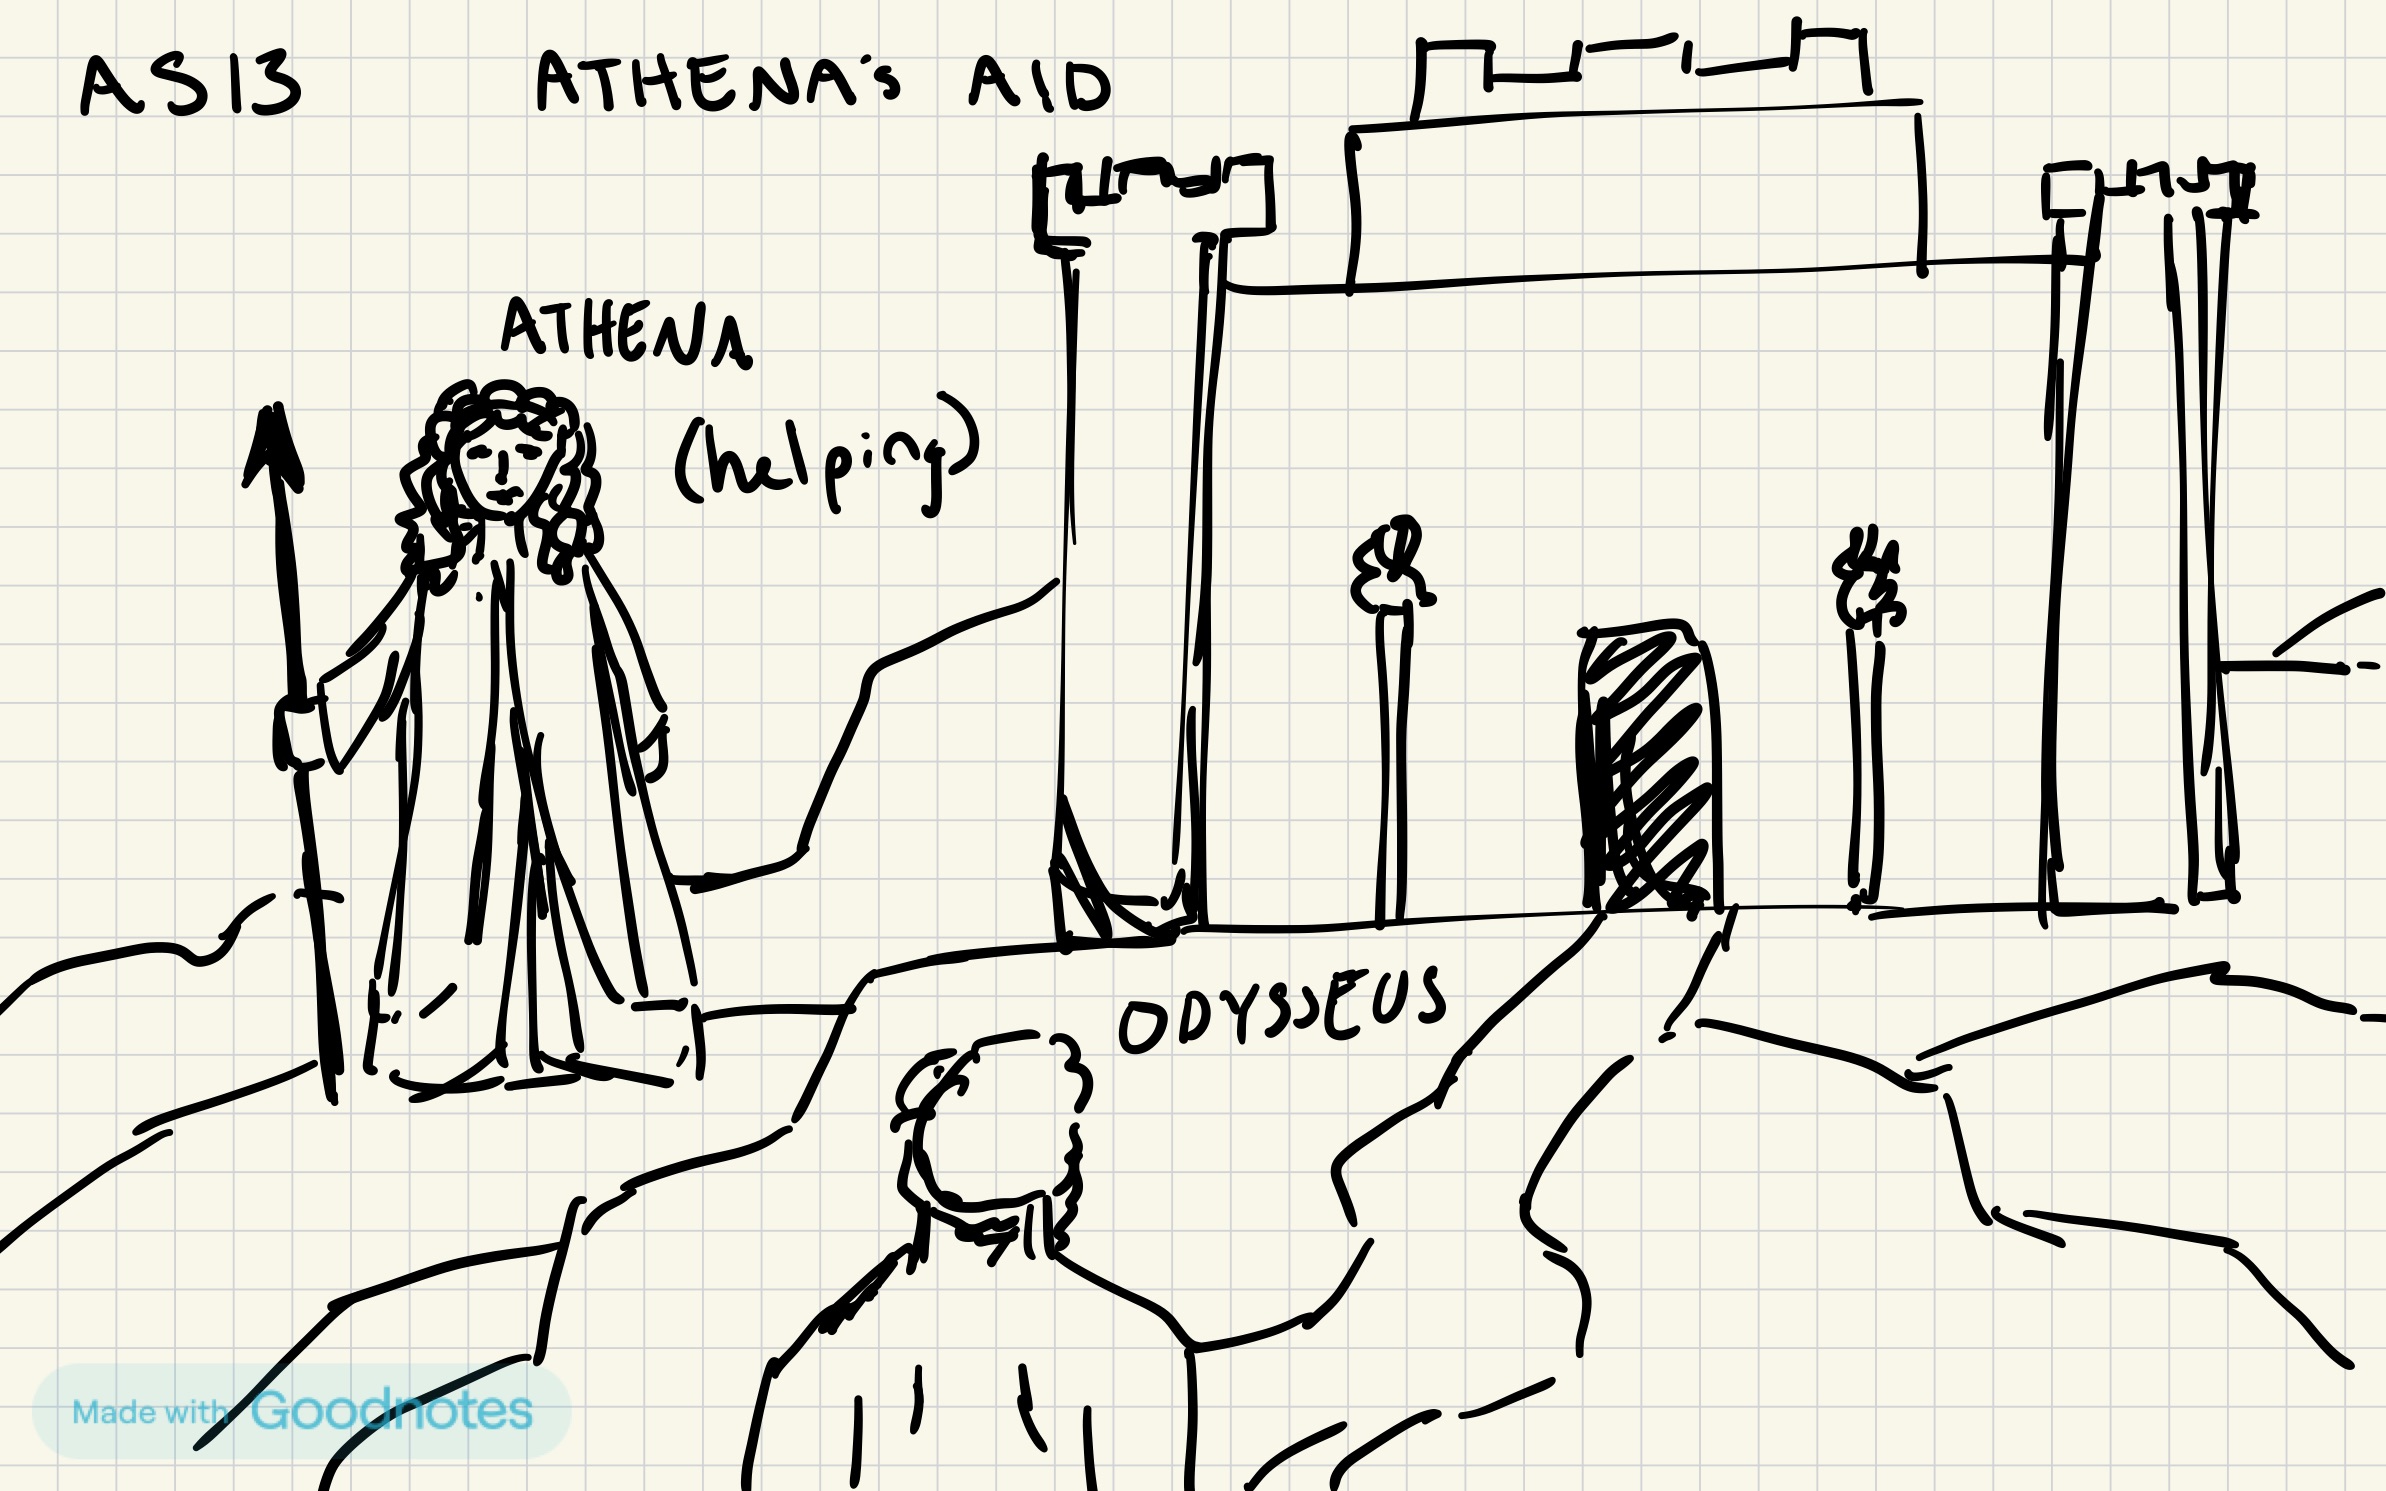 AS13
ATHENA's AID
ATHENA
(helping)
ODYSSEUS
Made with Goodnotes